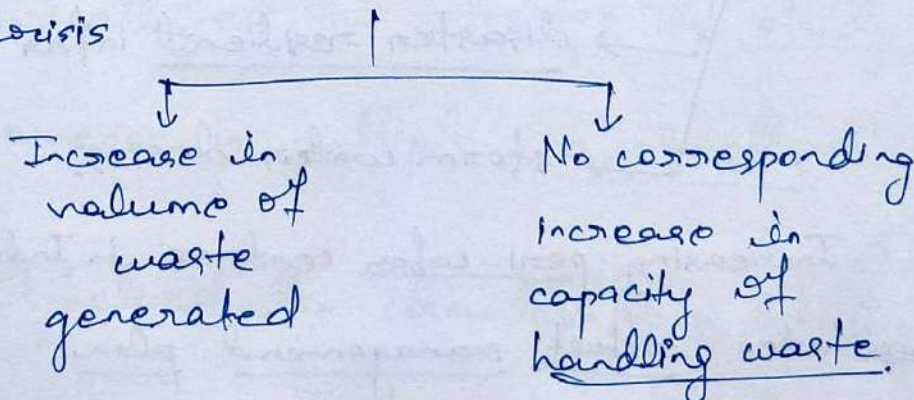 crisis
Increase in
volume of
waste
generated
No corresponding
increase in
capacity of
handling waste.